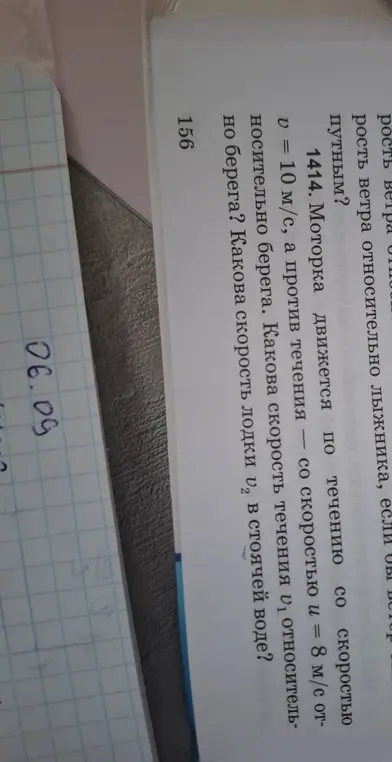 рость ветра
рость ветра относительно лыжника, если бы
путным?
1414. Моторка движется по течению со скоростью
v = 10 м/с, а против течения — со скоростью u = 8 м/с от-
носительно берега. Какова скорость течения v₁ относитель-
но берега? Какова скорость лодки v₂ в стоячей воде?
156
06.09